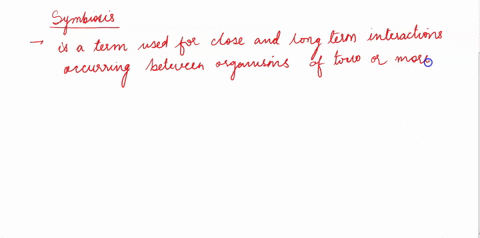 Symbiosis
→ is a term used for close and long term interactions
occurring between organisms of two or more